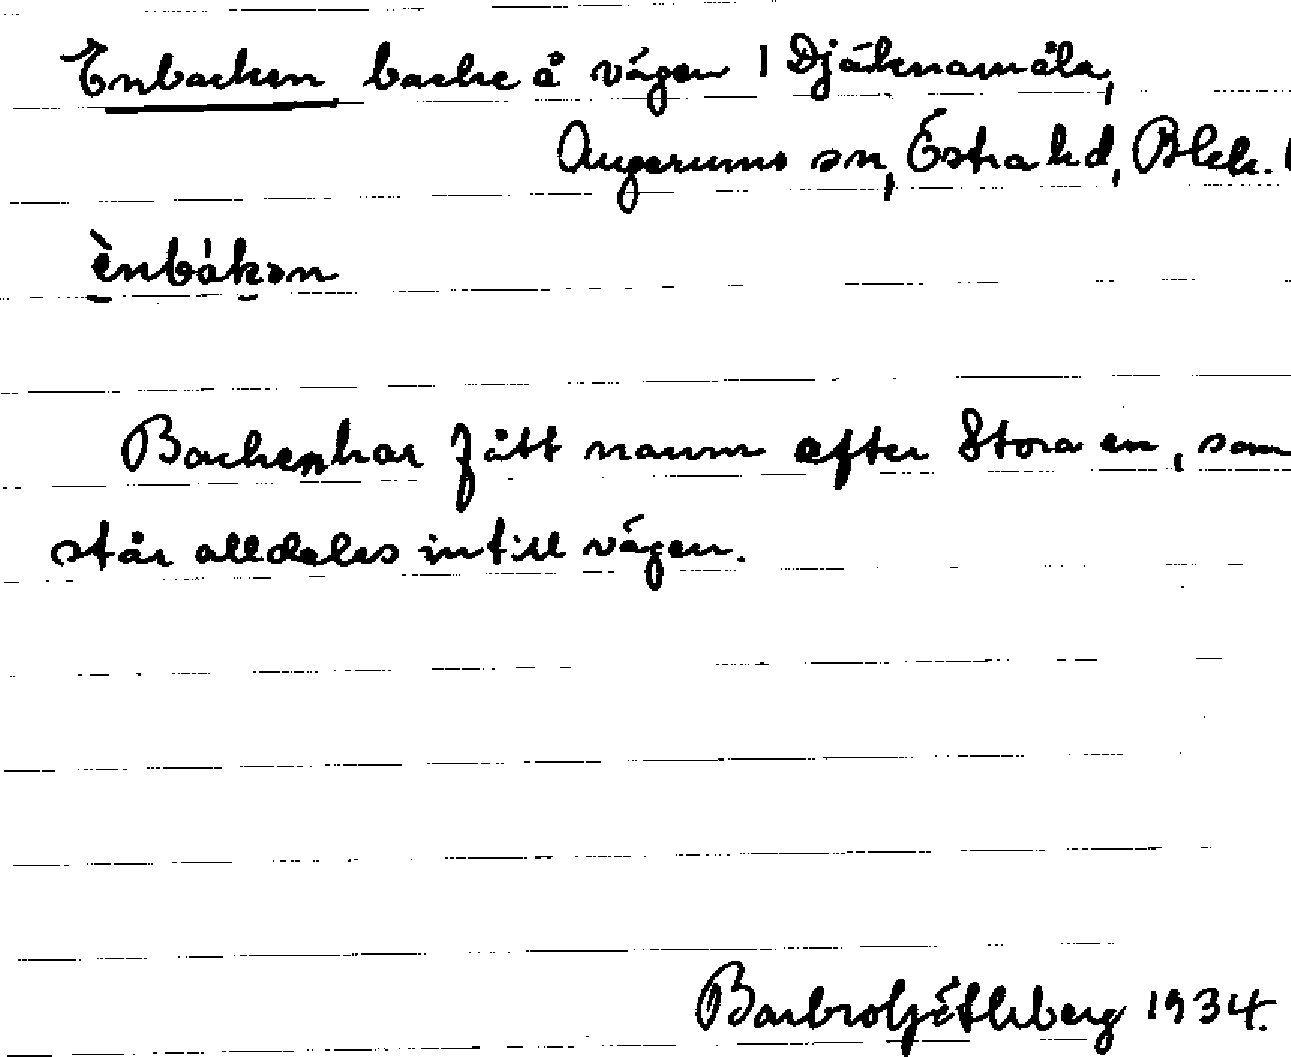 Enbacken backe å vägen i Djäknamåla,
Augerums sn, Östra hd, Blek. l
ènbákən
Backen har fått namn efter Stora en, som
står alldeles intill vägen.
Barbro 1934.